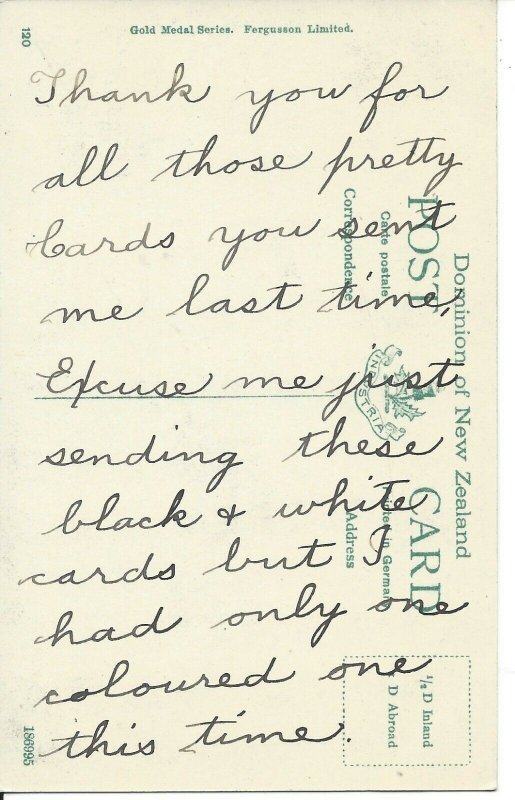 120
Gold Medal Series. Fergusson Limited.
Thank you for
all those pretty
Cards you sent
me last time,
Excuse me just
sending these
black & white
cards but I
had only one
coloured one
this time.
Dominion of New Zealand
POST CARD
Carte postale
Printed in German
Correspondence
Address
INDUSTRIA
½ D Inland
D Abroad
186995